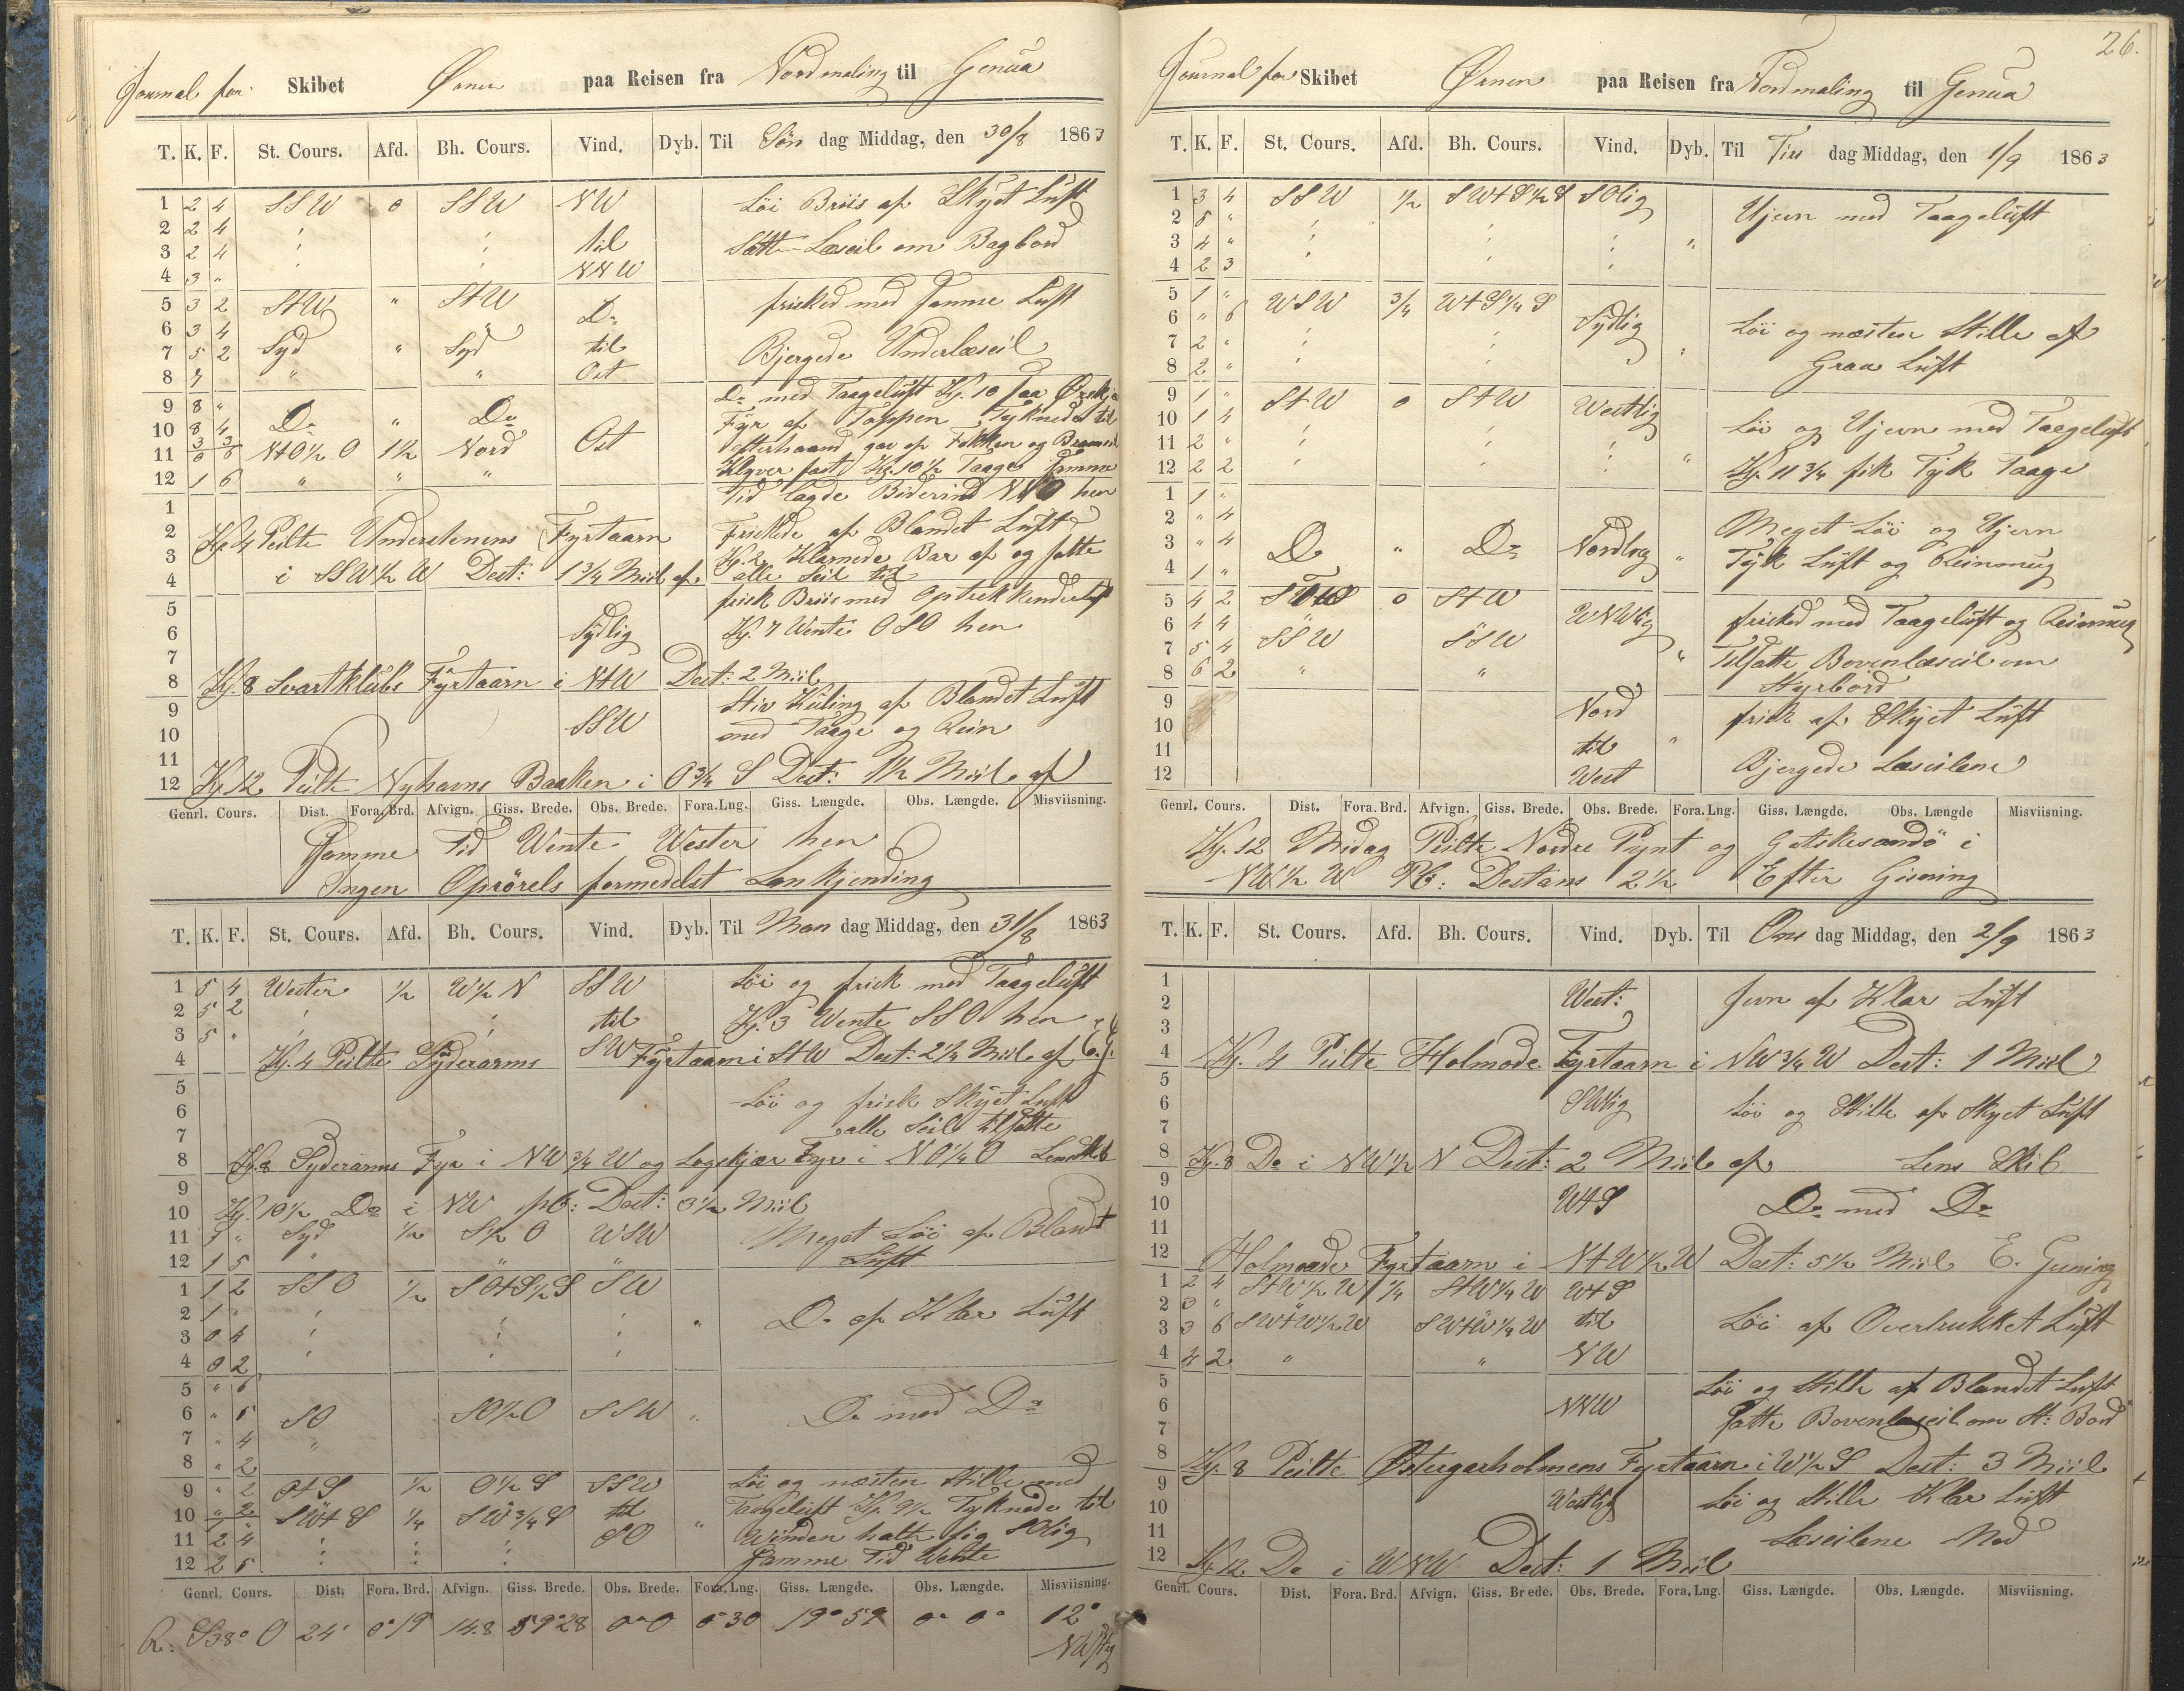 Journal for Skibet Ørnen paa Reisen fra Nordmaling til Genua
T. K. F. St. Cours. Afd. Bh. Cours. Vind. Dyb. Til Søn dag Middag, den 30/8 1863
1 2 4 SSW 0 SSW NW Løi Briis af Skyet Luft
2 2 4 til
3 2 4 Satte Læseil om Bagbord
4 3 " NNW
5 3 2 StW " StW Do frisked med samme Luft
6 3 4 Syd " Syd
7 5 2 til Bjergede Underlæseil
8 7 " " Ost
9 8 " Do " Do Do med Taageluft Kl. 10 saa Ørskjær
10 8 4 Fyr af Toppen Tyknede til
11 3 3 0 6 NtO½O 1½ Nord Ost efterhaand gav af Fokken og Bramseil
12 1 6 " " " Klyver fast Kl. 10½ Taage samme
1 Tid lagde Bidevind NNO hen
2 Kl. 4 Peilte Understenens Fyrtaarn Friskede af Blandet Luft
3 i SSW½W Dist: 1¾ Miil af Kl. 2 Klarnede Bar af og satte
4 alle Seil til
5 frisk Briis med Optrekkende Luft
6 Sydlig Kl. 7 Wente OSO hen
7
8 Kl. 8 Svartklubs Fyrtaarn i NtW Dist: 2 Miil
9 Stiv Kuling af Blandet Luft
10 SSW med Taage og Rein
11
12 Kl. 12 Peilte Nyhavns Baaken i O¾S Dist: 1½ Miil af
Genrl. Cours. Dist. Fora. Brd. Afvign. Giss. Brede. Obs. Brede. Fora. Lng. Giss. Længde. Obs. Længde. Misviisning.
Samme Tid Wente Wester hen
Ingen Oprørels formedelst Lankjending
T. K. F. St. Cours. Afd. Bh. Cours. Vind. Dyb. Til Man dag Middag, den 31/8 1863
1 5 4 Wester ½ W½N SSW Løi og frisk med Taageluft
2 5 2 til Kl. 3 Wente SSO hen
3 5 " SW
4 Kl. 4 Peilte Syderarms Fyrtaarn i StW Dist: 2¼ Miil af E. G.
5
6 Løi og frisk Skyet Luft
7 alle Seil tilsatte
8 Kl. 8 Syderarms Fyr i NW¾W og Lagskjær Fyr i NO¼O Lens Skib
9
10 Kl. 10½ Do i NW pC: Dist: 3½ Miil
11 1 " Syd ½ S½O WSW Meget Løi af Blandt
12 1 5 " " " Luft
1 1 2 SSO ½ SOtS½S SW
2 1 " " Do af Klar Luft
3 0 4
4 0 2
5 " 6
6 " 5 SO SO½O SSW " Do med Do
7 " 4 "
8 " 2
9 " 2 OtS ½ O½S SSW Løi og næsten Stille med
10 " 2 SWtS ¼ SW¾S til " Taageluft Kl. 9½ Tyknede til
11 2 4 SO Winden halte sig SOlig
12 2 5 Samme Tid Wente
Genrl. Cours. Dist. Fora. Brd. Afvign. Giss. Brede. Obs. Brede. Fora. Lng. Giss. Længde. Obs. Længde. Misviisning.
R: S38° O 24' 0° 19 14.8 59° 28 0° 0 0° 30 19° 59 0° 0° 12°
NWstlig
26.
Journal for Skibet Ørnen paa Reisen fra Nordmaling til Genua
T. K. F. St. Cours. Afd. Bh. Cours. Vind. Dyb. Til Tirs dag Middag, den 1/9 1863
1 3 4 SSW ½ SWtS½S SOlig
2 5 " Ujevn med Taageluft
3 4 " "
4 2 3
5 1 " WSW ¾ WtS¼S Sydlig
6 " 6 Løi og næsten Stille af
7 2 " "
8 2 " Graa Luft
9 1 " StW 0 StW Westlig
10 1 4 Løi og Ujevn med Taageluft
11 2 "
12 2 2 " Kl. 11¾ fik Tyk Taage
1 1 "
2 " 4 Meget Løi og Ujevn
3 " 4 Do " Do Nordlig " Tyk Luft og Reinsmug
4 1 "
5 4 2 StW 0 StW WNWlig frisked med Taageluft og Reinsmug
6 4 4
7 5 4 SSW SSW " Tilsatte Bovenlæseil om
8 6 2 " " Styrbord
9 Nord frisk af Skyet Luft
10 til "
11 Bjergede Læseilene
12 West
Genrl. Cours. Dist. Fora. Brd. Afvign. Giss. Brede. Obs. Brede. Fora. Lng. Giss. Længde. Obs. Længde Misviisning.
Kl. 12 Midag Peilte Nordre Pynt og Gotskesandø i
NW½W PC: Distans 2½ Efter Gisning
T. K. F. St. Cours. Afd. Bh. Cours. Vind. Dyb. Til Ons dag Middag, den 2/9 1863
1 West: Jevn af Klar Luft
2
3
4 Kl. 4 Peilte Holmode Fyrtaarn i NW¾W Dist: 1 Miil
5
6 SWlig Løi og Stille af Skyet Luft
7
8 Kl. 8 Do i NW½N Dist: 2 Miil af Lens Skib
9
10 WtS Do med Do
11
12 Holmoade Fyrtaarn i NtW½W Dist: 5½ Miil E. Gisning
1 2 4 StW½W ¼ StW¼W WtS
2 3 " Løi af Overtrukket Luft
3 3 6 SWtW½W SWtW¼W til
4 4 2 " " NW
5 Løi og Stille af Blandet Luft
6 NNW
7 satte Bovenlæseil om St: Bord
8 Kl. 8 Peilte Østergarholmens Fyrtaarn i W½S Dist: 3 Miil
9
10 Westlig Løi og Stille Klar Luft
11 Læseilene Ned
12 Kl. 12 Do i WNW Dist: 1 Miil
Genrl. Cours. Dist. Fora. Brd. Afvign. Giss. Brede. Obs. Brede. Fora. Lng. Giss. Længde. Obs. Længde. Misviisning.